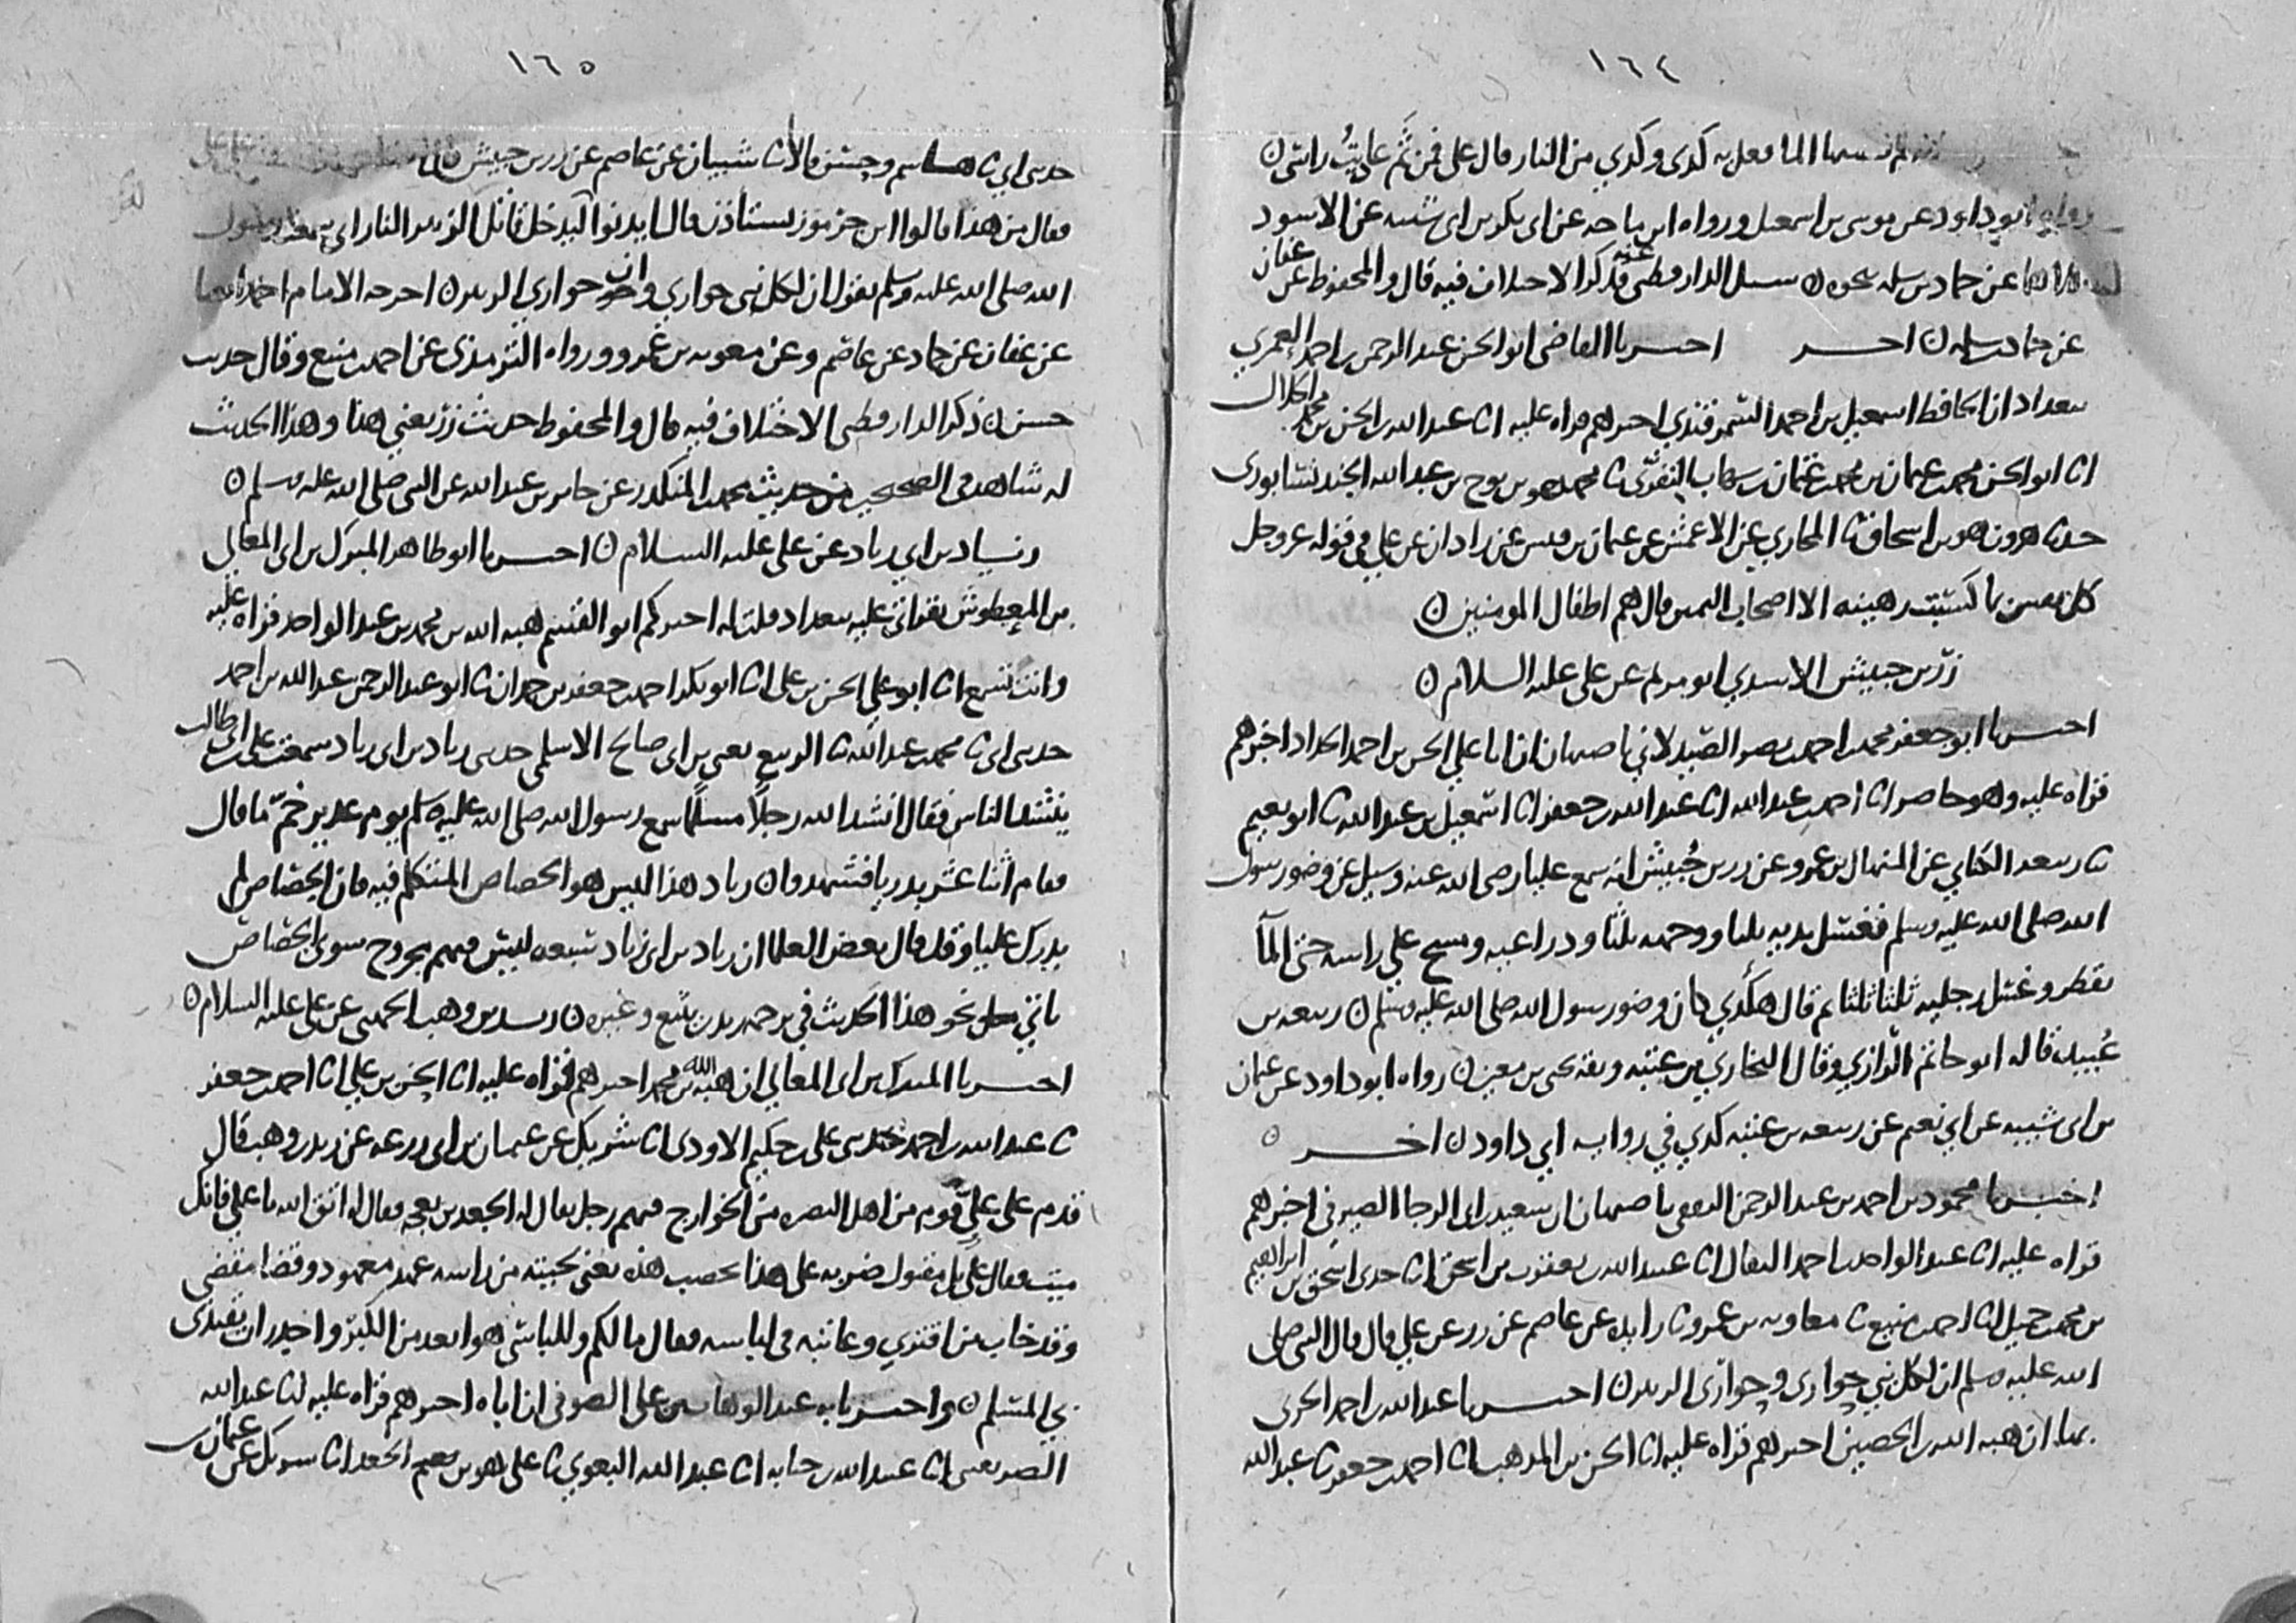 ١٦٤
الماء فعل به كذى وكذي من النار قال علي فمن ثم عاديت راسي ن
رواه ابو داود عن موسى بن اسمعيل ورواه ابن ماجه عن ابي بكر بن ابي شيبه عن الاسود
عن حماد بن سلمه نحوه ن سئل الدارقطني عنه فذكر الاختلاف فيه قال والمحفوظ عن عفان
عن حماد بن سلمه ن اخر اخبرنا القاضي ابو الحسن عبد الرحمن بن احمد العمري
ببغداد ان الحافظ اسمعيل بن احمد السمرقندي اخبرهم قراه عليه انا عبد الله بن الحسن بن محمد الخلال
انا ابو الحسن محمد بن عثمان بن محمد بن عثمان بن شهاب النفري نا محمد هو بن نوح بن عبد الله الجنديسابوري
حدثنا هرون هو بن اسحاق نا المحاربي عن الاعمش عن عثمان بن قيس عن زاذان عن علي في قوله عز وجل
كل نفس بما كسبت رهينه الا اصحاب اليمين قال هم اطفال المومنين ن
زر بن حبيش الاسدي ابو مريم عن علي عليه السلام ن
اخبرنا ابو جعفر محمد بن احمد بن نصر الصيدلاني باصبهان ان ابا علي الحسن بن احمد الحداد اخبرهم
قراه عليه وهو حاضر انا احمد بن عبد الله انا عبد الله بن جعفر انا اسمعيل بن عبد الله نا ابو نعيم
نا ربيعه الكناني عن المنهال بن عمرو عن زر بن حبيش انه سمع عليا رضي الله عنه وسيل عن وضو رسول
الله صلى الله عليه وسلم فغسل يديه ثلثا ووجهه ثلثا وذراعيه ومسح على راسه حتى الما
يقطر وغسل رجليه ثلثا ثلثا ثم قال هكذي كان وضو رسول الله صلى الله عليه وسلم ن ربيعه بن
عبيد قاله ابو حاتم الرازي وقال البخاري بن عتبه وثقه يحيى بن معين ن رواه ابو داود عن عثمان
بن ابي شيبه عن ابي نعيم عن ربيعه بن عتبه كذي في روايه ابي داود ن اخر ن
اخبرنا محمود بن احمد بن عبد الرحمن الثقفي باصبهان ان سعيد بن ابي الرجا الصيرفي اخبرهم
قراه عليه انا عبد الواحد بن احمد البقال انا عبيد الله بن يعقوب بن اسحق انا جدي اسحق بن ابراهيم
بن محمد بن جميل انا احمد بن منيع نا معاويه بن عمرو نا زايده عن عاصم عن زر عن علي قال قال النبي صلى
الله عليه وسلم ان لكل نبي حواري وحواري الزبير ن اخبرنا عبد الله بن احمد الحربي
بها ان هبه الله بن الحصين اخبرهم قراه عليه انا الحسن بن المذهب انا احمد بن جعفر نا عبد الله
١٦٥
حدثني ابي نا هاشم وحسن قالا نا شيبان عن عاصم عن زر بن حبيش
فقال من هذا قالوا ابن جرموز يستاذن قال ايذنوا له ليدخل قاتل الزبير النار اني سمعت رسول
الله صلى الله عليه وسلم يقول ان لكل نبي حواري وان حواري الزبير ن اخرجه الامام احمد ايضا
عن عفان عن حماد عن عاصم وعن معويه بن عمرو ورواه الترمذي عن احمد بن منيع وقال حديث
حسن ن ذكر الدارقطني الاختلاف فيه قال والمحفوظ حديث زر يعني هذا وهذا الحديث
له شاهد في الصحيحين من حديث محمد بن المنكدر عن جابر بن عبد الله عن النبي صلى الله عليه وسلم ن
زياد بن ابي زياد عن علي عليه السلام ن اخبرنا ابو طاهر المبرك بن ابي المعالي
بن المعطوش بقراتي عليه ببغداد قلت له اخبركم ابو القسم هبه الله بن محمد بن عبد الواحد قراه عليه
وانت تسمع انا ابو علي الحسن بن علي انا ابو بكر احمد بن جعفر بن حمدان نا ابو عبد الرحمن عبد الله بن احمد
حدثني ابي نا محمد بن عبد الله نا الربيع يعني بن ابي صالح الاسلمي حدثني زياد بن ابي زياد سمعت علي بن ابي طالب
ينشد الناس فقال انشد الله رجلا مسلما سمع رسول الله صلى الله عليه وسلم يوم غدير خم ما قال
فقام اثنا عشر بدريا فشهدوا ن زياد هذا ليس هو الجصاص المتكلم فيه فان الجصاص لم
يدرك عليا وقد قال بعض العلما ان زياد بن ابي زياد تسعه ليس فيهم مجروح سوى الجصاص
ياتي نحو هذا الحديث في ترجمه زيد بن يثيع وغيره ن زيد بن وهب الجهني عن علي عليه السلام ن
اخبرنا المبرك بن ابي المعالي ان هبه الله بن محمد اخبرهم قراه عليه انا الحسن بن علي انا احمد بن جعفر
نا عبد الله بن احمد حدثني علي بن حكيم الاودي انا شريك عن عثمان بن ابي زرعه عن زيد بن وهب قال
قدم على علي قوم من اهل البصره من الخوارج فيهم رجل يقال له الجعد بن بعجه فقال له اتق الله يا علي فانك
ميت فقال علي بل مقتول ضربه على هذا تخضب هذه يعني لحيته من راسه عهد معهود وقضا مقضي
وقد خاب من افتري وعاتبه في لباسه فقال ما لكم وللباسي هو ابعد من الكبر واجدر ان يقتدى
بي المسلم ن واخبرنا به عبد الوهاب بن علي الصوفي ان اباه اخبرهم قراه عليه انا عبد الله
الصريفيني انا عبيد الله بن حبابه انا عبد الله البغوي نا علي هو بن الجعد انا شريك عن عثمان بن